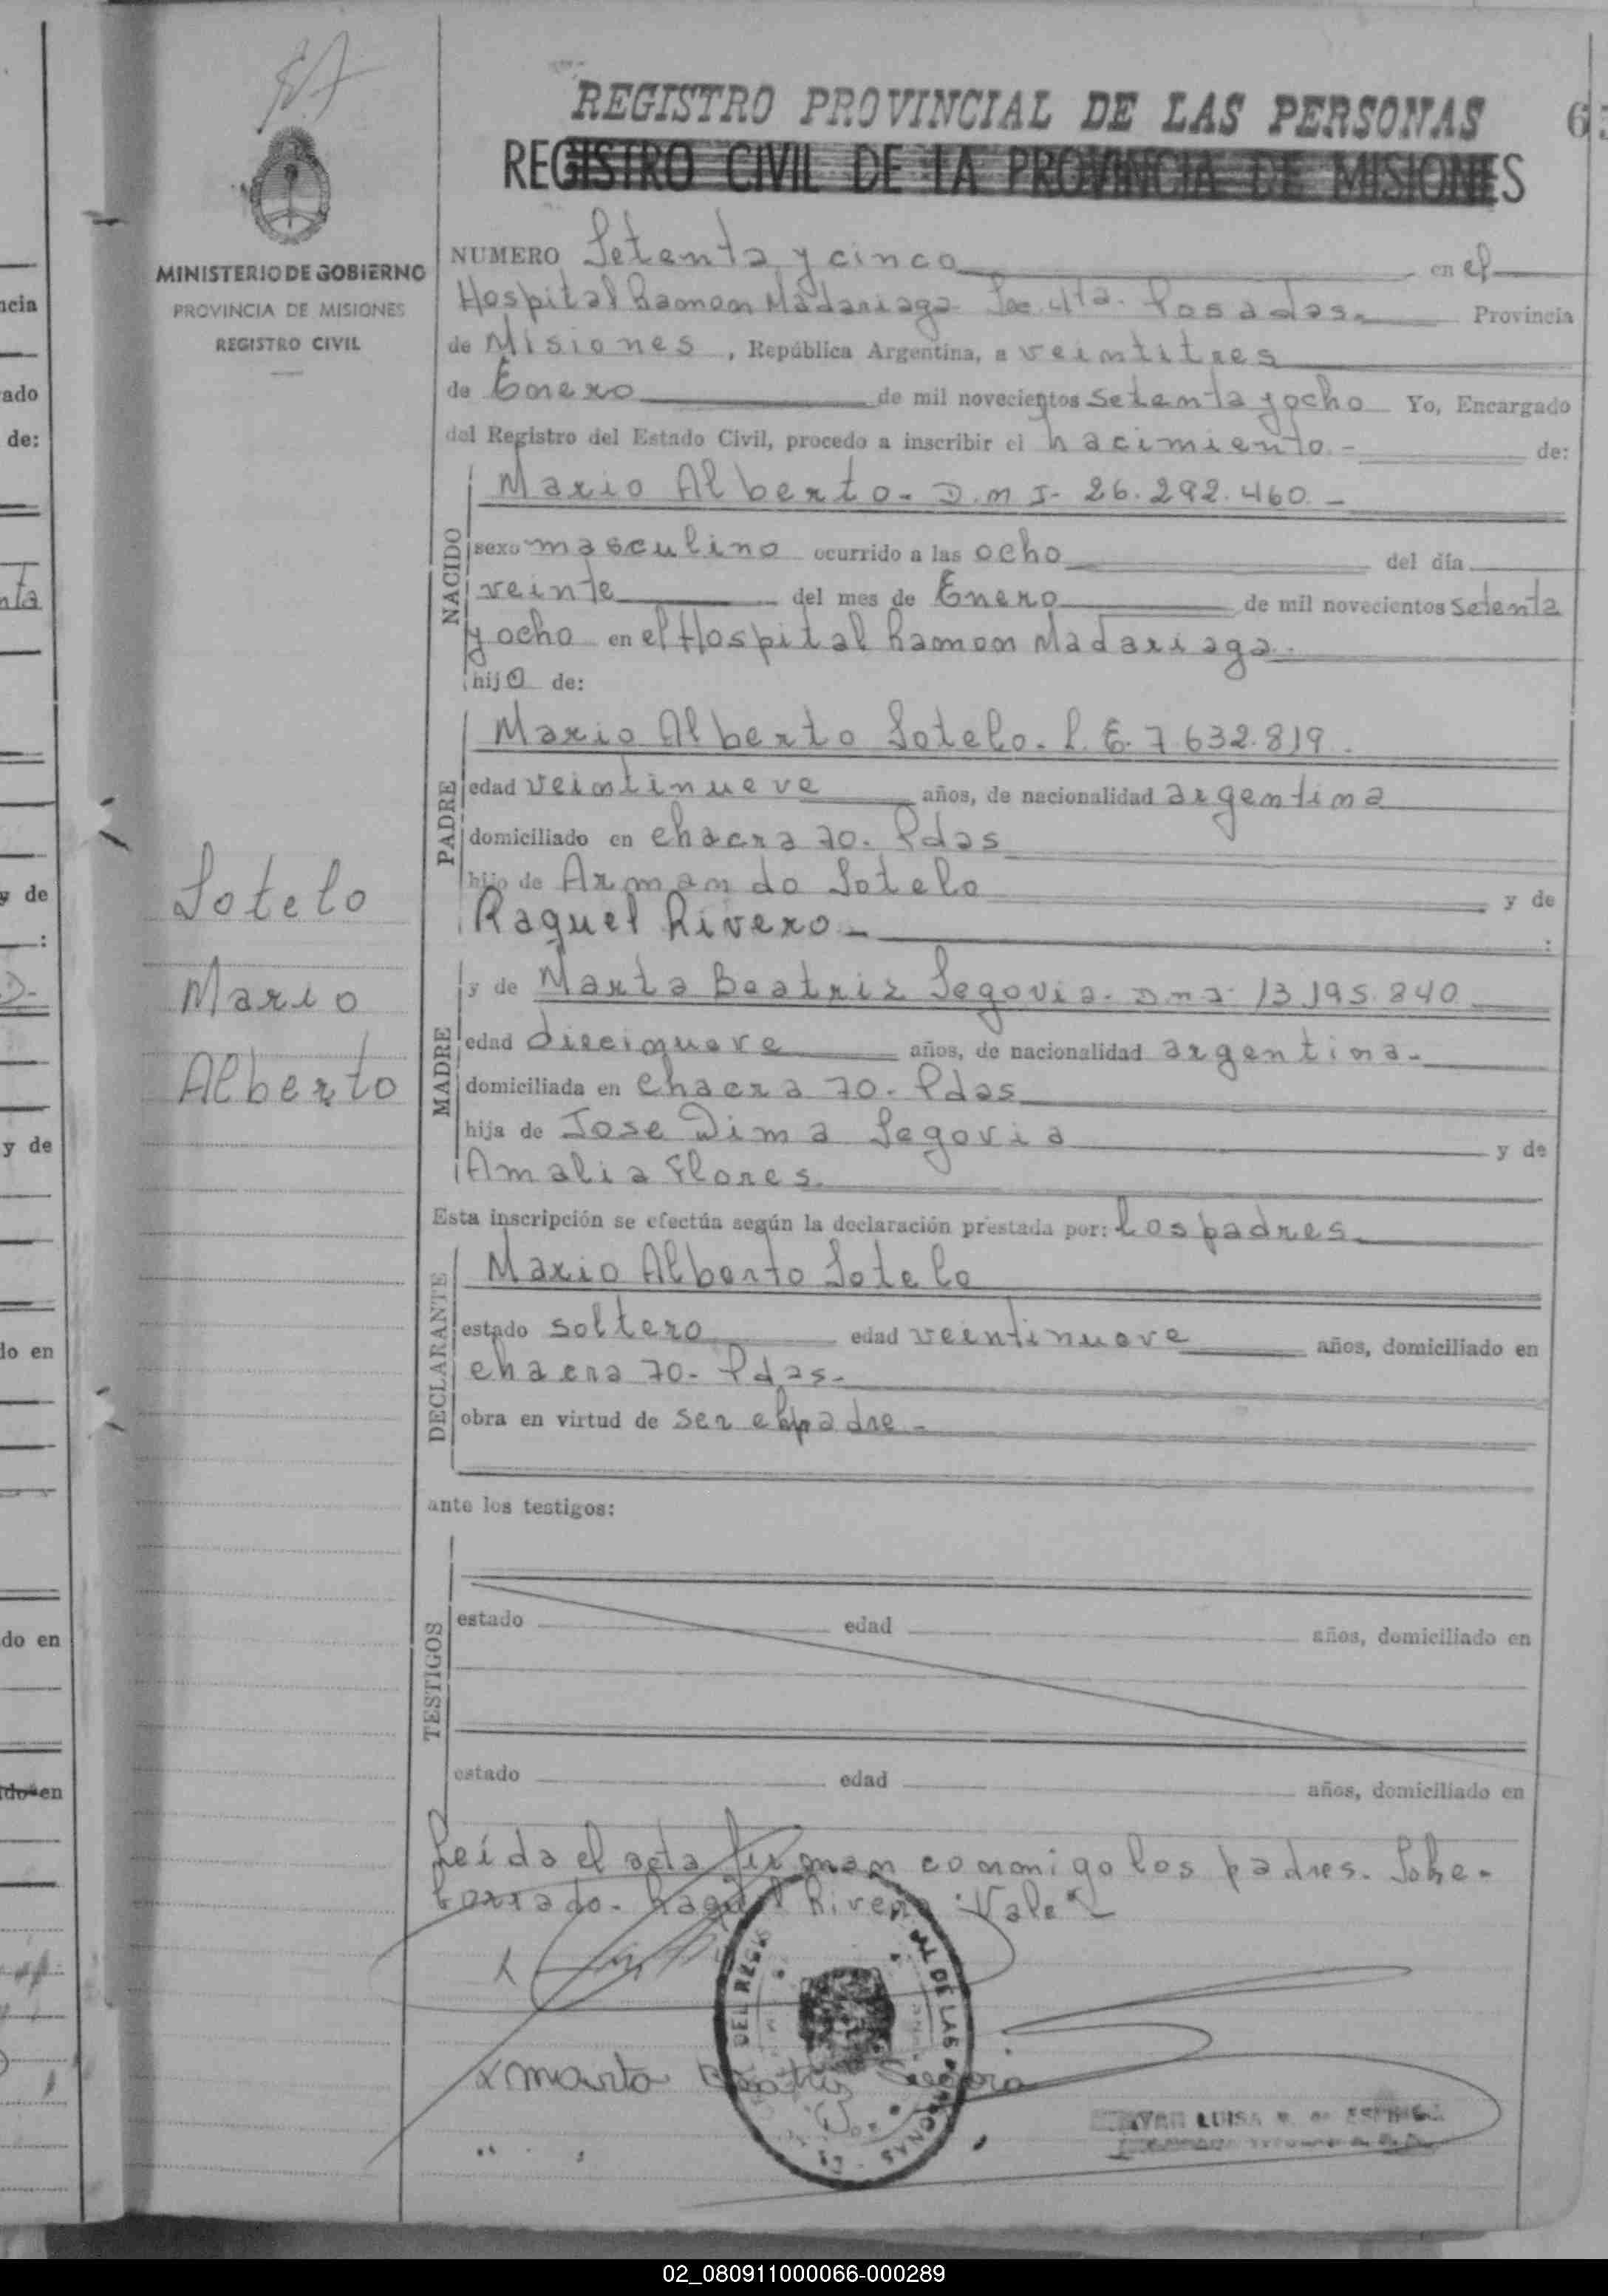 REGISTRO PROVINCIAL DE LAS PERSONAS
REGISTRO CIVIL DE LA PROVINCIA DE MISIONES
MINISTERIO DE GOBIERNO
PROVINCIA DE MISIONES
REGISTRO CIVIL
NUMERO Setenta y cinco en el
Hospital Ramon Madariaga Sec. 4ta. Posadas. Provincia
de Misiones, República Argentina, a veintitres
de Enero de mil novecientos setenta y ocho Yo, Encargado
del Registro del Estado Civil, procedo a inscribir el nacimiento.- de:
NACIDO
Mario Alberto- D.N.I- 26.292.460.-
sexo masculino ocurrido a las ocho del día
veinte del mes de Enero de mil novecientos setenta
y ocho en el Hospital Ramon Madariaga.
hijo de:
PADRE
Mario Alberto Sotelo. L.E. 7.632.819.
edad veintinueve años, de nacionalidad argentina
domiciliado en chacra 70. Pdas
hijo de Armando Sotelo y de
Raquel Rivero-:
Sotelo
Mario
Alberto
MADRE
y de Marta Beatriz Segovia. DNI 13.195.840
edad diecinueve años, de nacionalidad argentina-
domiciliada en chacra 70. Pdas
hija de Jose Dima Segovia y de
Amalia Flores.
Esta inscripción se efectúa según la declaración prestada por: los padres
DECLARANTE
Mario Alberto Sotelo
estado soltero edad veintinueve años, domiciliado en
chacra 70- Pdas.
obra en virtud de ser el padre-
ante los testigos:
TESTIGOS
estado edad años, domiciliado en
estado edad años, domiciliado en
Leída el acta firman conmigo los padres. Sobre-
borrado- Raquel Rivero. Vale
x Marta Beatriz Segovia
DEL REGIS DE LAS PERSONAS
LUISA
02_080911000066-000289